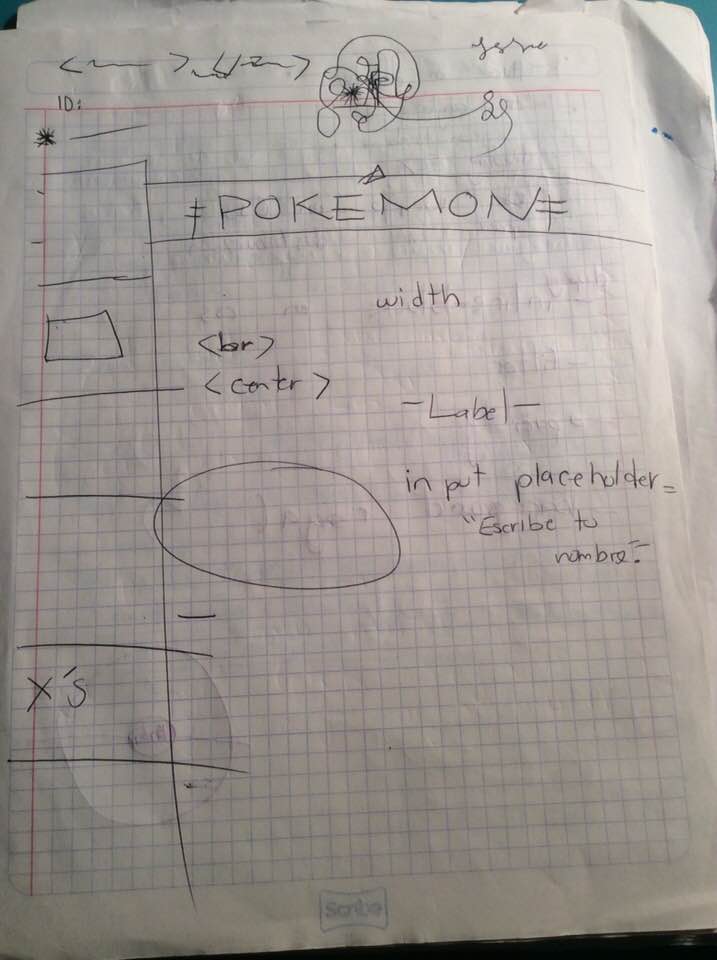 ID:
‡POKEMON‡
width
<br>
<center>
-Label-
input placeholder=
"Escribe tu
nombre"
X's
scribe